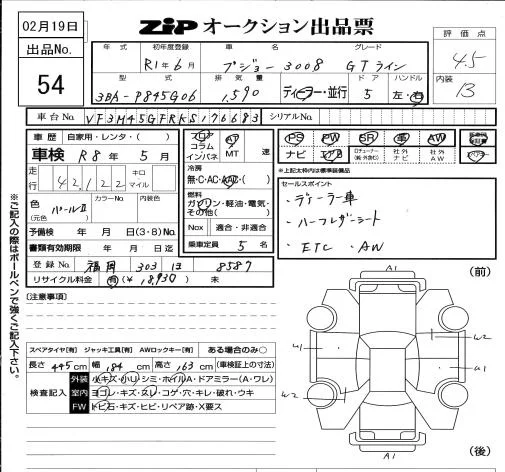 02月19日
出品No.
54
ZiP オークション出品票
評価点
4.5
内装
B
年式 初年度登録 車名 グレード
R1年6月 プジョー3008 GTライン
型式 排気量 ドア ハンドル
3BA-P845G06 1,590 ディーラー・並行 5 左・右
車台No. VF3M45GFRKS176683 シリアルNo.
車歴 自家用・レンタ・( )
車検 R8年 5月
走行 42,122 キロ マイル
色 (元色) パールⅡ カラーNo. 内装色
予備検 年 月 日(3・8)No.
書類有効期限 年 月 日迄
登録No. 福岡 303 は 8587
リサイクル料金 有(¥18,930) 未
フロア コラム インパネ
AT MT 速
冷房
無・C・AC・AAC・( )
燃料
ガソリン・軽油・電気・その他( )
Nox 適合・非適合
乗車定員 5 名
PS PW SR 革 AW
ナビ エアB 社外ナビ 社外AW
※上記太枠内は標準装備品
セールスポイント
・ディーラー車
・ハーフレザーシート
・ETC ・AW
[注意事項]
※ご記入の際はボールペンで強くご記入下さい。
スペアタイヤ[有] ジャッキ工具[有] AWロックキー[有] ある場合のみ○
長さ 445cm 幅 184cm 高さ 163cm (車検証上の寸法)
検査記入
外装 小キズ・小リ・シミ・ホイルA・ドアミラー(A・ワレ)
室内 ヨゴレ・キズ・スレ・コゲ・穴・キレ・破れ・ウキ
FW トビ石・キズ・ヒビ・リペア跡・X要ス
(前)
A1
W1
W2
A1
W2
A1
(後)